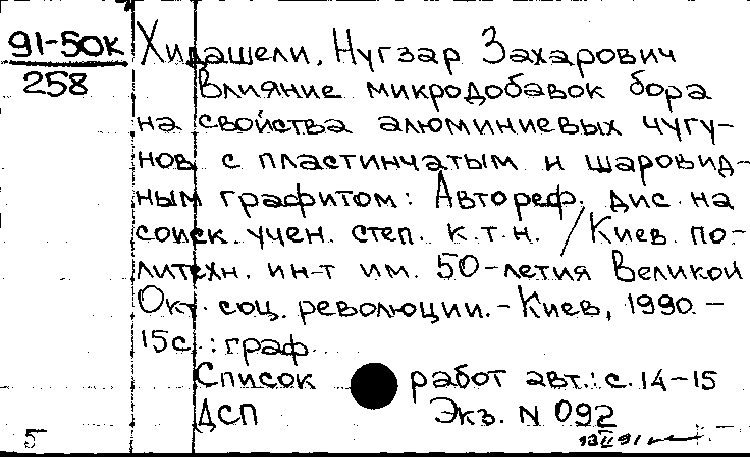 91-50к
258
Хидашели, Нугзар Захарович
Влияние микродобавок бора
на свойства алюминиевых чугу-
нов с пластинчатым и шаровид-
ным графитом: Автореф. дис. на
соиск. учен. степ. к.т.н. / Киев. по-
литехн. ин-т им. 50-летия Великой
Окт. соц. революции. - Киев, 1990. -
15с.: граф
Список работ авт.: с. 14-15
ДСП Экз. N 092
5